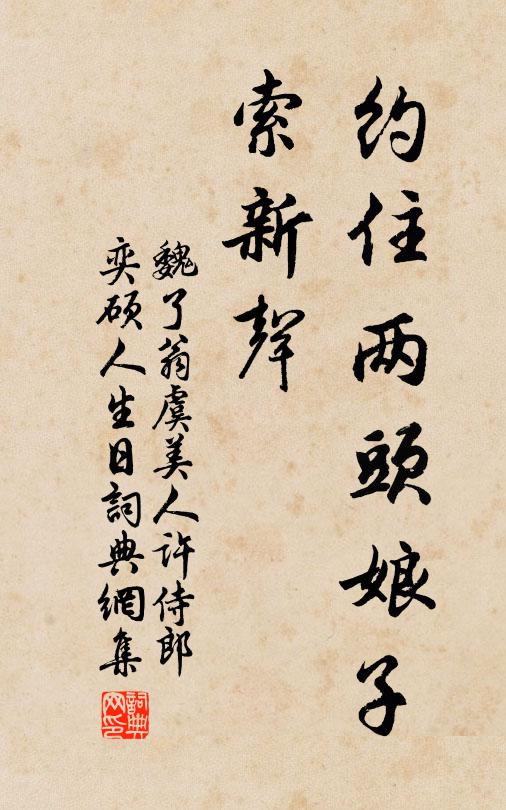 约住两頭娘子
索新聲
魏了翁虞美人許侍郎
奕碩人生日詞典網集
詞典
网印